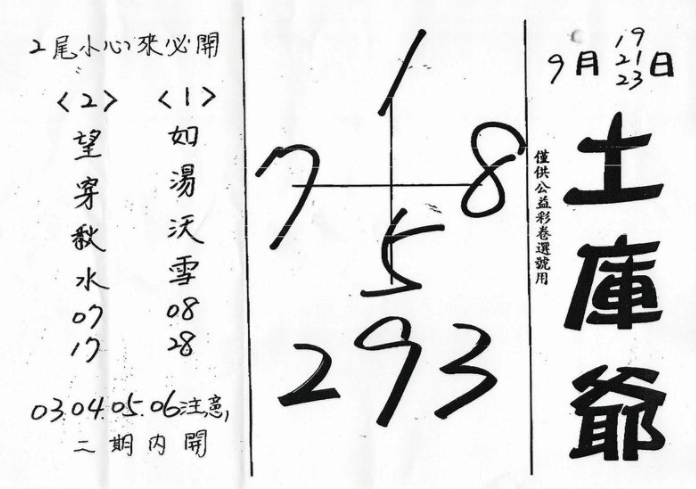 9月 19 21 23日
土庫爺
僅供公益彩卷選號用
1
7 8
5
293
2尾小心來必開
<1>
如湯沃雪
08
28
<2>
望穿秋水
07
17
03.04.05.06注意,
二期內開